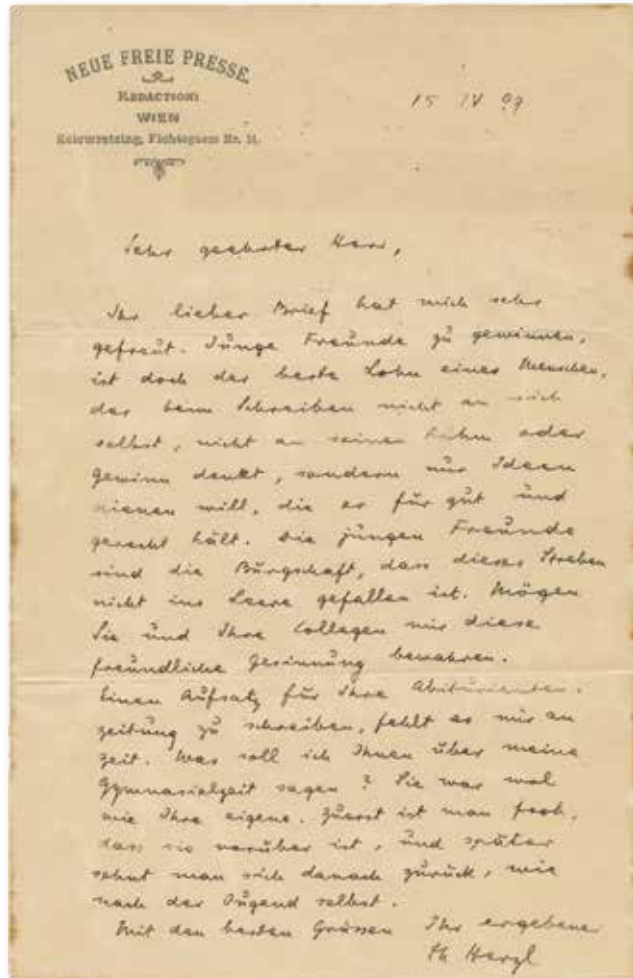 NEUE FREIE PRESSE.
REDACTION:
WIEN
Nr. 11.
15 IV 09
Sehr geehrter Herr,
Ihr lieber Brief hat mich sehr
gefreut. Junge Freunde zu gewinnen,
ist doch der beste Lohn eines Menschen,
der beim Schreiben nicht an sich
selbst, nicht an seinen Ruhm oder
Gewinn denkt, sondern nur Ideen
dienen will, die er für gut und
gerecht hält. Die jungen Freunde
sind die Bürgschaft, dass dieses Streben
nicht ins Leere gefallen ist. Mögen
Sie und Ihre Collegen mir diese
freundliche Gesinnung bewahren.
Einen Aufsatz für Ihre Abiturienten-
zeitung zu schreiben, fehlt es mir an
Zeit. Was soll ich Ihnen über meine
Gymnasialzeit sagen? Sie war wol
wie Ihre eigene. Zuerst ist man froh,
dass sie vorüber ist, und später
sehnt man sich danach zurück, wie
nach der Jugend selbst.
Mit den besten Grüssen Ihr ergebener
Th Herzl